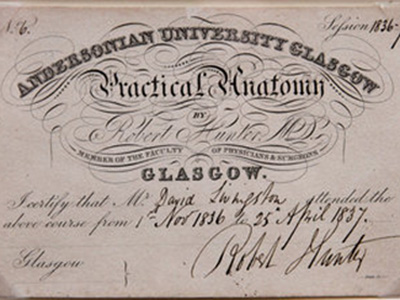 No. 6. Session 1836-7
ANDERSONIAN UNIVERSITY GLASGOW
Practical Anatomy
BY
Robert Hunter M.D.
MEMBER OF THE FACULTY OF PHYSICIANS & SURGEONS
GLASGOW.
I certify that Mr. David Livingston attended the
above course from 1st Nov 1836 to 25 April 1837.
Robert Hunter
Glasgow